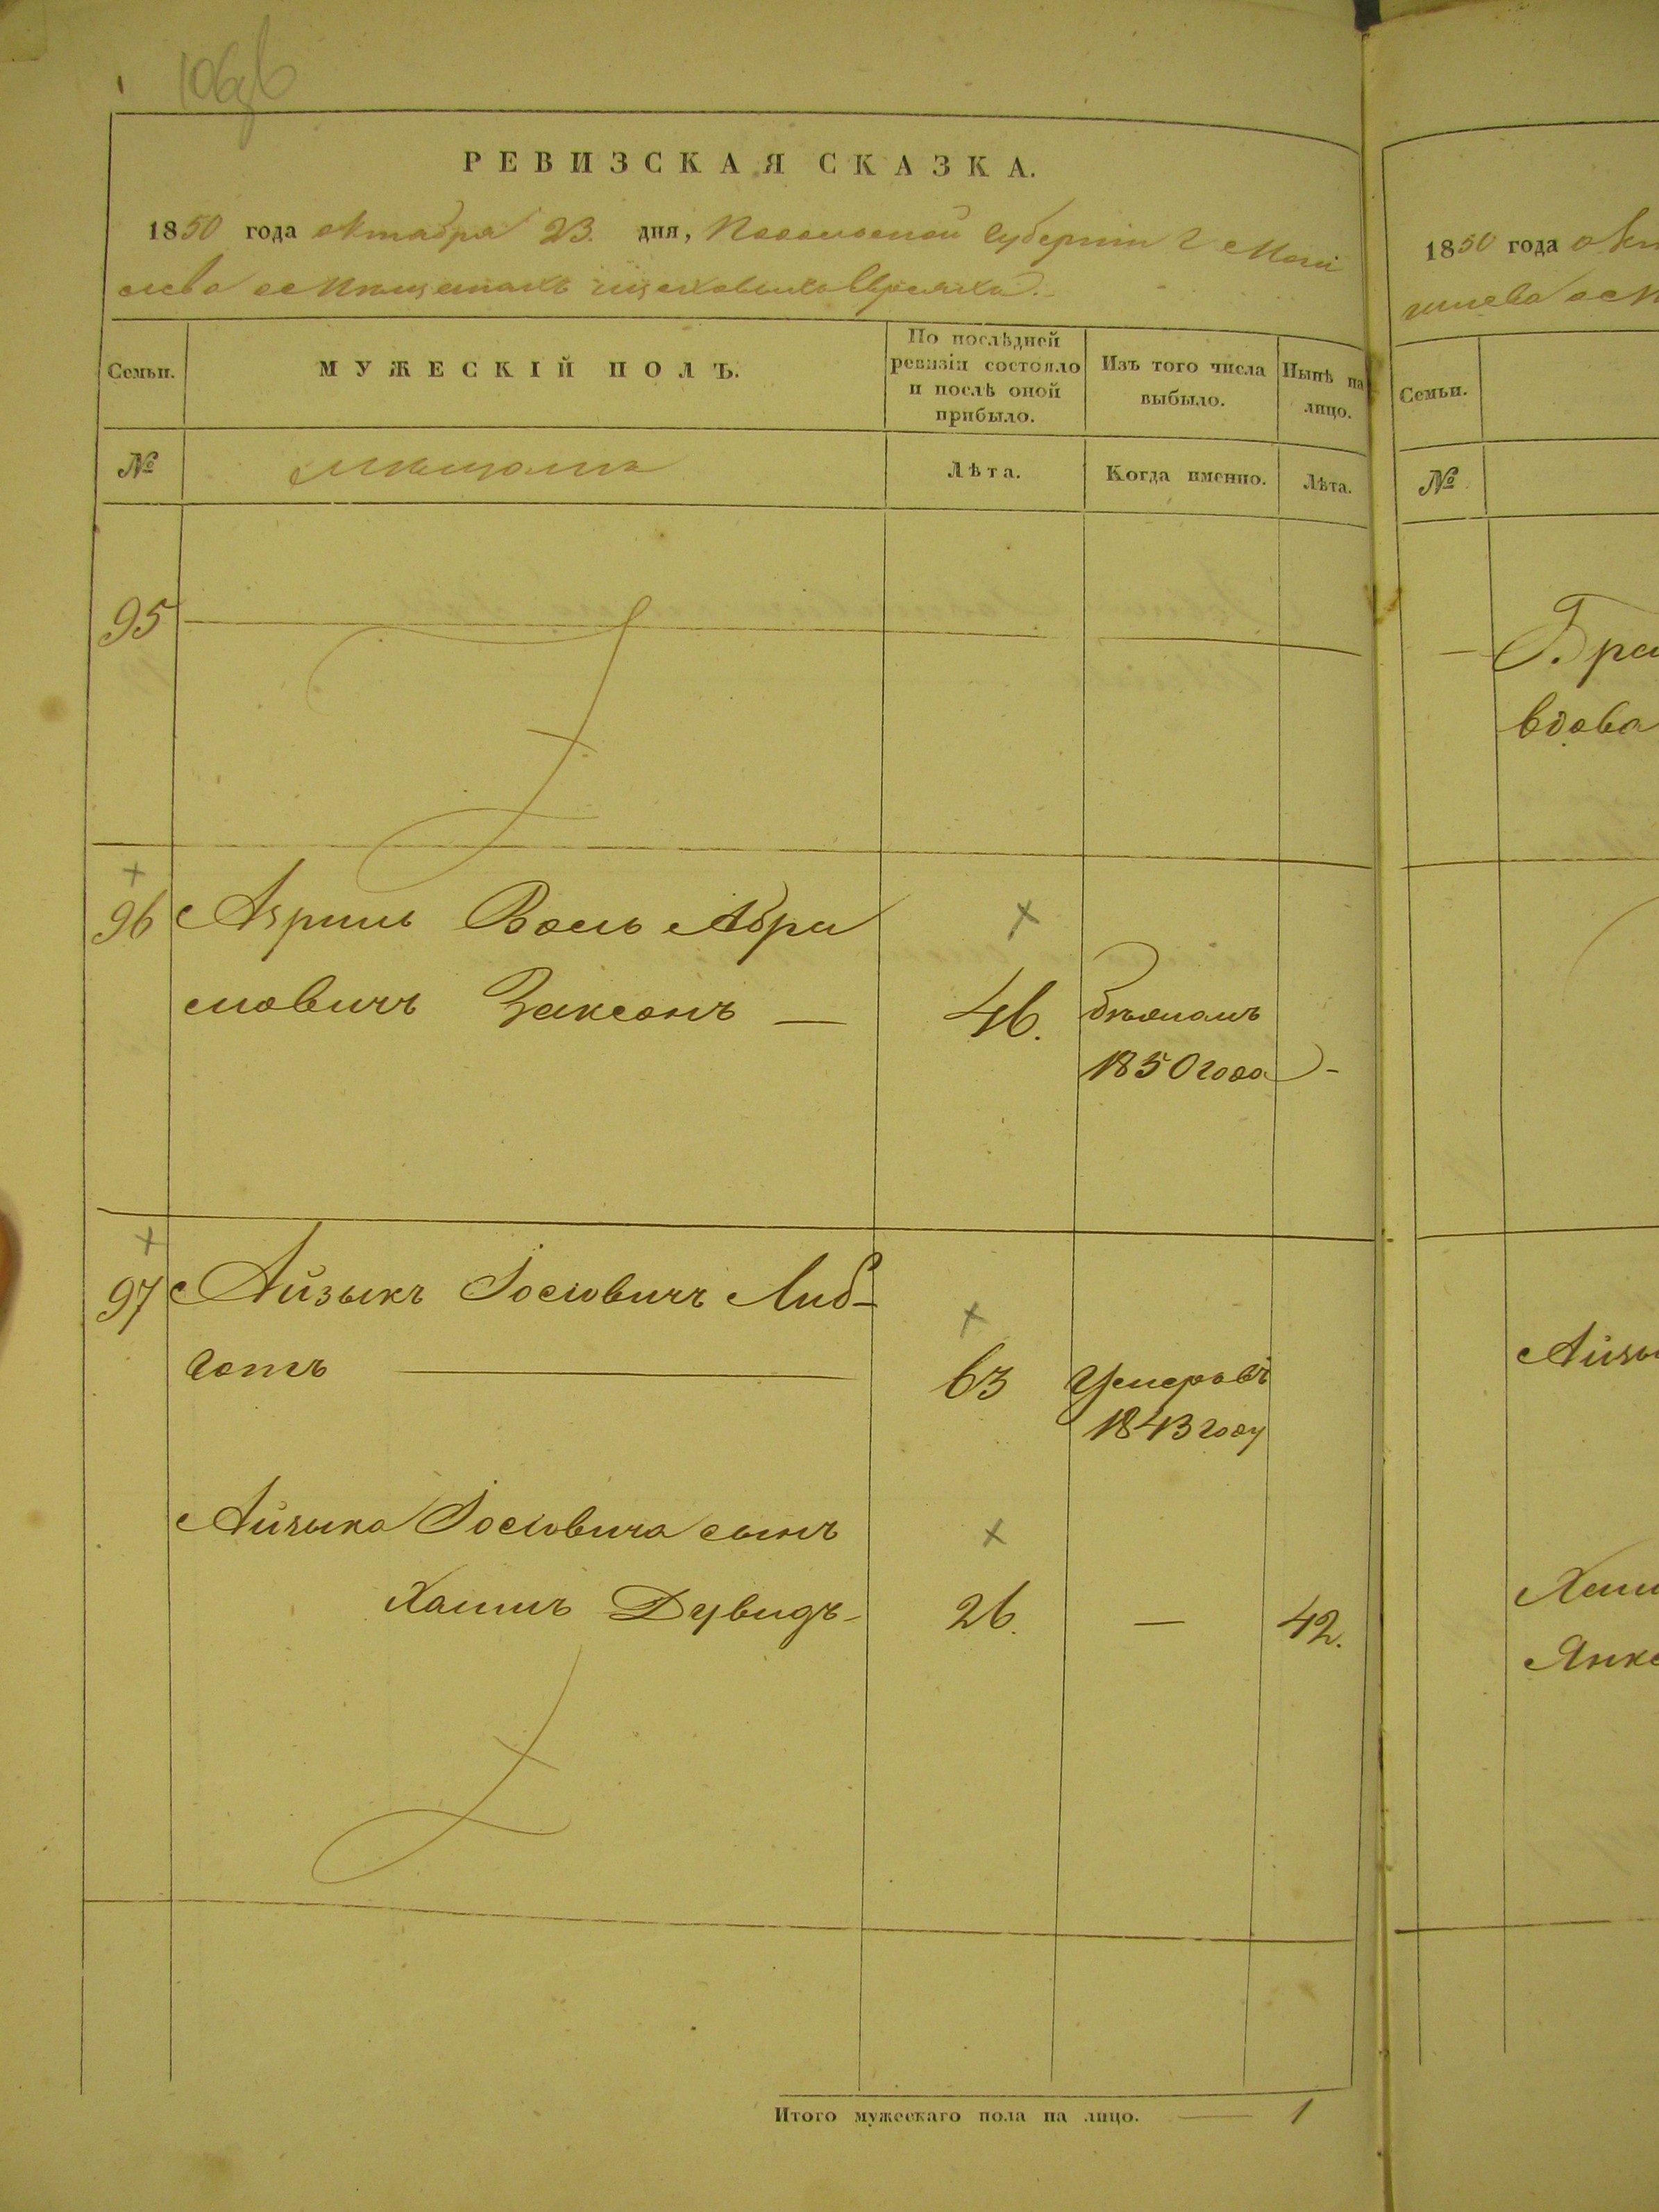 106об
РЕВИЗСКАЯ СКАЗКА.
1850 года октября 23. дня, Подольской Губернии Г. Моги
лева о Мѣщанахъ Евреяхъ.
Семьи.
МУЖЕСКІЙ ПОЛЪ.
По послѣдней
ревизіи состояло
и послѣ оной
прибыло.
Изъ того числа
выбыло.
Нынѣ на
лицо.
№
Мѣщане
Лѣта.
Когда именно.
Лѣта.
95
96 Азриль Волъ Абра
мовичъ Заксонъ — 46. бѣжалъ
1850 года -
97 Айзыкъ Іосіовичъ Либ-
готъ 63 Умеръ въ
1843 году
Айзыка Іосіовича сынъ
Хаимъ Дувидъ- 26. — 42.
Итого мужескаго пола на лицо. — 1
1850 года ок
Семьи.
№
— Бра
вдова
Айзы
Хаим
Янке